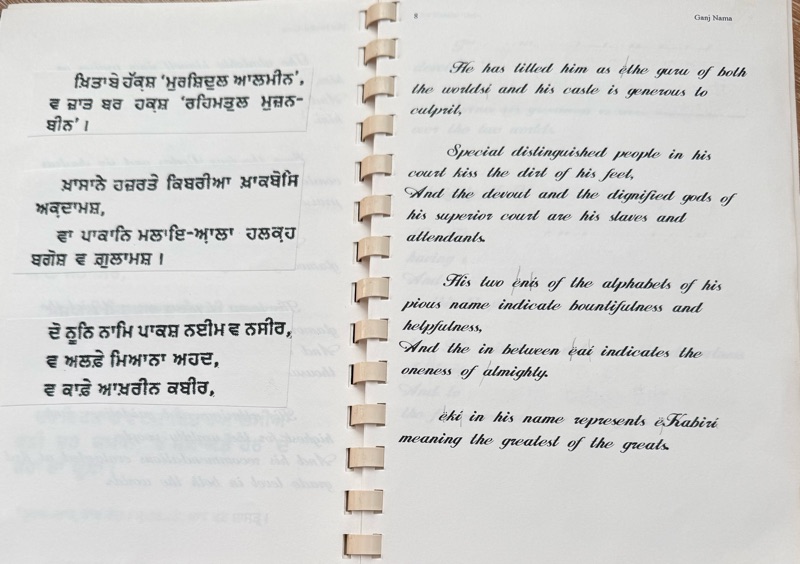 ਖ਼ਿਤਾਬੇ ਹੱਕ਼ਸ਼ 'ਮੁਰਸ਼ਿਦੁਲ ਆਲਮੀਨ',
ਵ ਜ਼ਾਤ ਬਰ ਹਕ਼ਸ਼ 'ਰਹਿਮਤੁਲ ਮੁਜ਼ਨ-
ਬੀਨ' ।
ਖ਼ਾਸਾਨੇ ਹਜ਼ਰਤੇ ਕਿਬਰੀਆ ਖ਼ਾਕਬੋਸਿ
ਅਕ਼ਦਾਮਸ਼,
ਵਾ ਪਾਕਾਨਿ ਮਲਾਇ-ਆ਼ਲਾ ਹਲਕ਼ਹ
ਬਗੋਸ਼ ਵ ਗ਼ੁਲਾਮਸ਼ ।
ਦੋ ਨੂਨਿ ਨਾਮਿ ਪਾਕਸ਼ ਨਈਮ ਵ ਨਸੀਰ,
ਵ ਅਲਫ਼ੇ ਮਿਆਨਾ ਅਹਦ,
ਵ ਕਾਫ਼ੇ ਆਖ਼ਰੀਨ ਕਬੀਰ,
8
Ganj Nama
He has titled him as ëthe guru of both
the worldsí and his caste is generous to
culprit,
Special distinguished people in his
court kiss the dirt of his feet,
And the devout and the dignified gods of
his superior court are his slaves and
attendants.
His two ënís of the alphabets of his
pious name indicate bountifulness and
helpfulness,
And the in between ëaí indicates the
oneness of almighty.
ëkí in his name represents ëKabirí
meaning the greatest of the greats.